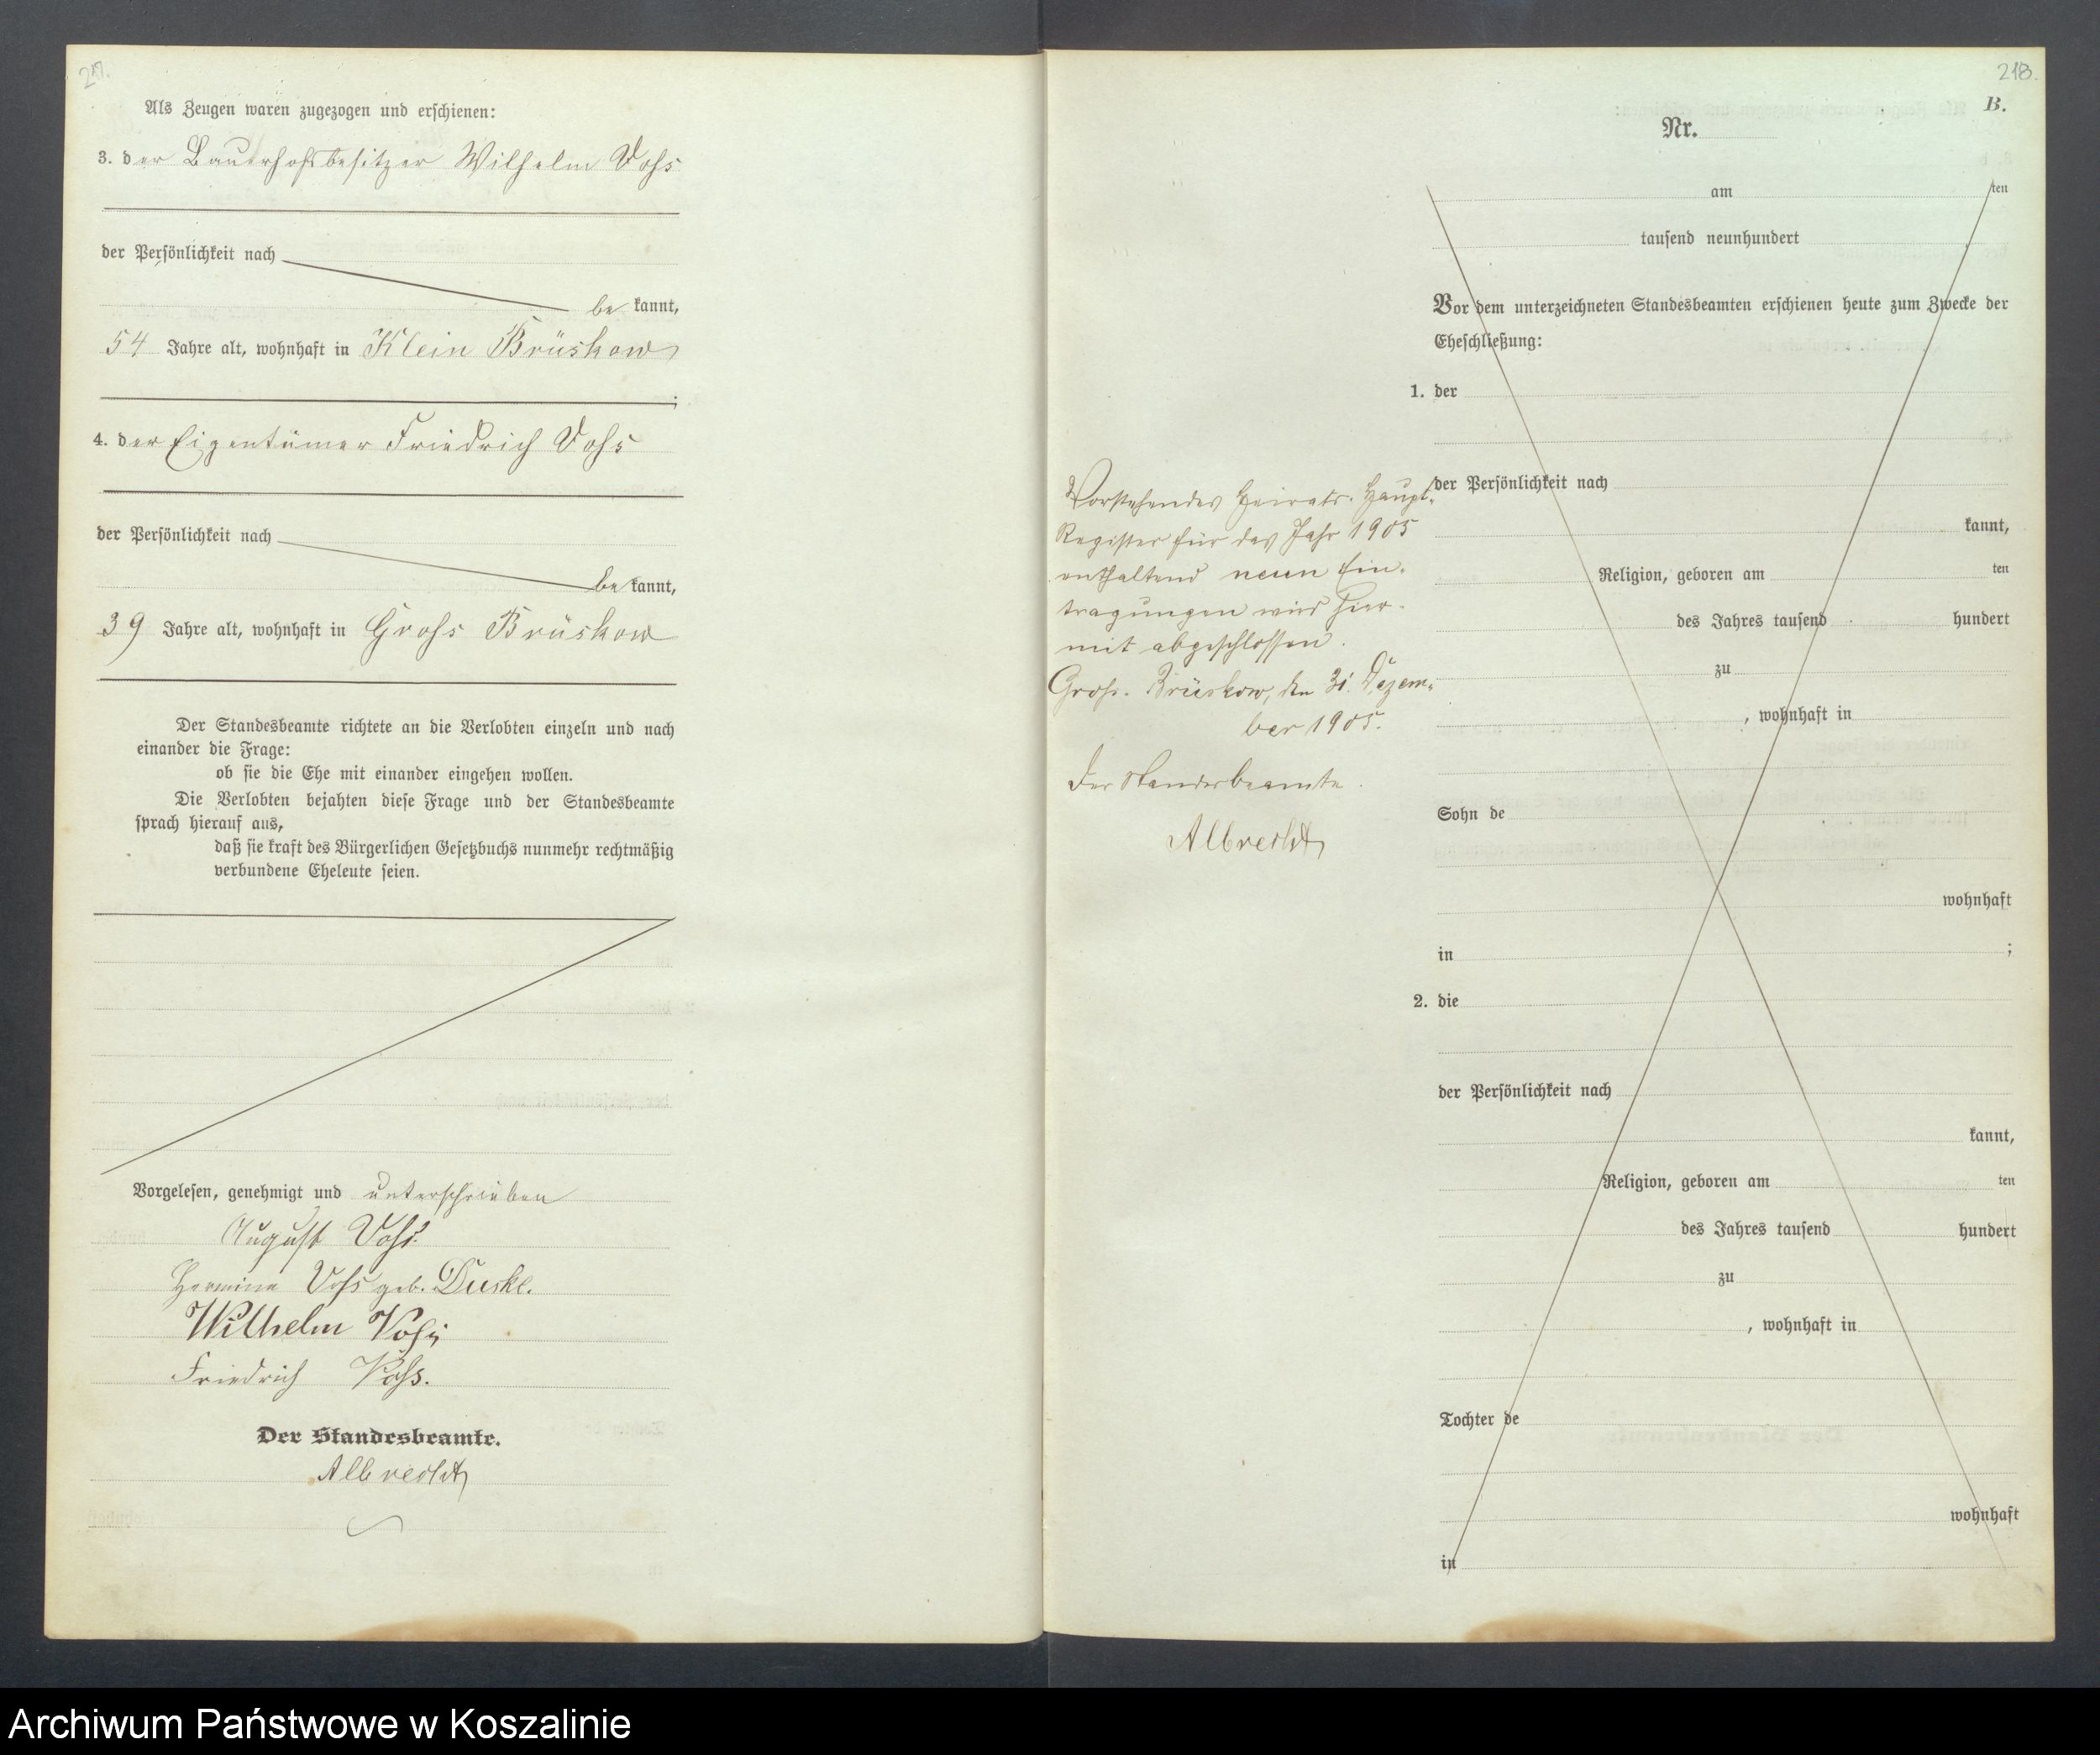 217.
Als Zeugen waren zugezogen und erschienen:
3. der Bauerhofsbesitzer Wilhelm Vohs
der Persönlichkeit nach
be kannt,
54 Jahre alt, wohnhaft in Klein Brüskow
;
4. der Eigentümer Friedrich Vohs
der Persönlichkeit nach
be kannt,
39 Jahre alt, wohnhaft in Grohs Brüskow
Der Standesbeamte richtete an die Verlobten einzeln und nach
einander die Frage:
ob sie die Ehe mit einander eingehen wollen.
Die Verlobten bejahten diese Frage und der Standesbeamte
sprach hierauf aus,
daß sie kraft des Bürgerlichen Gesetzbuchs nunmehr rechtmäßig
verbundene Eheleute seien.
Vorgelesen, genehmigt und unterschrieben
August Vohs.
Hermine Vohs geb.
Wilhelm Vohs
Friedrich Vohs.
Der Standesbeamte.
Albrecht
218.
B.
Nr.
am ten
tausend neunhundert
Vor dem unterzeichneten Standesbeamten erschienen heute zum Zwecke der
Eheschließung:
1. der
der Persönlichkeit nach
kannt,
Religion, geboren am ten
des Jahres tausend hundert
zu
, wohnhaft in
Sohn de
wohnhaft
in ;
2. die
der Persönlichkeit nach
kannt,
Religion, geboren am ten
des Jahres tausend hundert
zu
, wohnhaft in
Tochter de
wohnhaft
in
Vorstehendes Heirats-Haupt-
Register für das Jahr 1905
enthaltend neun Ein-
tragungen wird hier-
mit abgeschlossen.
Groß-Brüskow, den 31. Dezem-
ber 1905.
Der Standesbeamte.
Albrecht
Archiwum Państwowe w Koszalinie